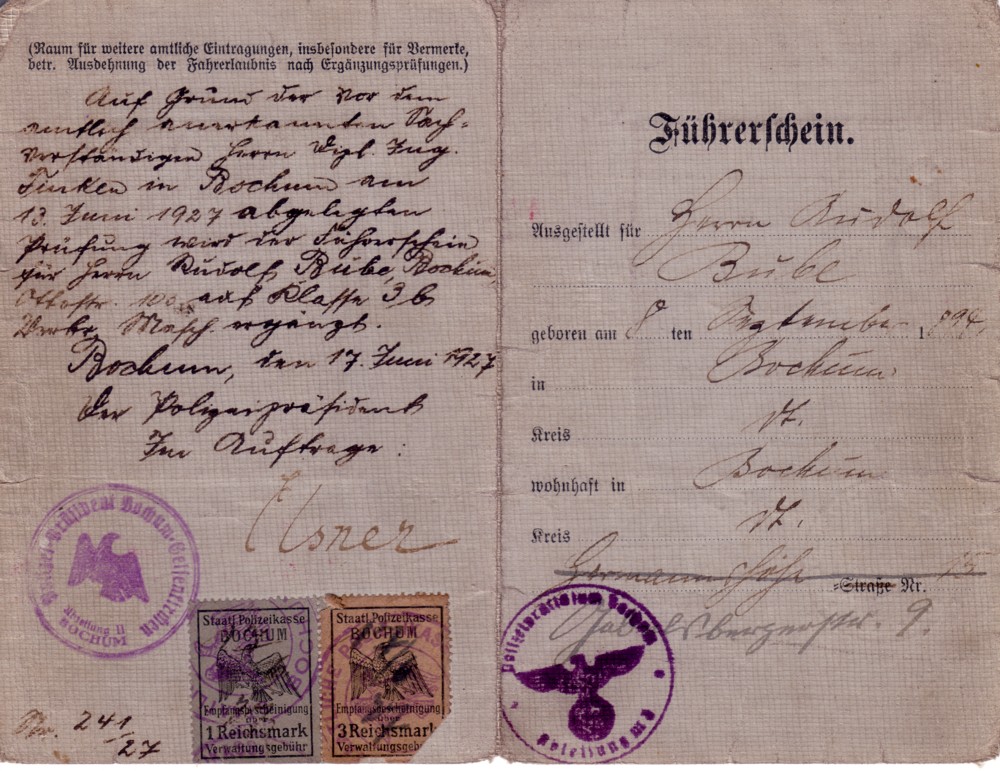 (Raum für weitere amtliche Eintragungen, insbesondere für Vermerke,
betr. Ausdehnung der Fahrerlaubnis nach Ergänzungsprüfungen.)
Auf Grund der vor dem
amtlich anerkannten Sach-
verständigen Herrn Dipl. Ing.
Finken in Bochum am
13. Juni 1927 abgelegten
Prüfung wird der Führerschein
für Herrn Rudolf Bube, Bochum,
Ottostr. 100 auf Klasse 3b
Masch. ergänzt.
Bochum, den 17. Juni 1927
Der Polizeipräsident
Im Auftrage:
Elsner
Polizei-Präsident Bochum-Gelsenkirchen
Abteilung II
BOCHUM
Staatl. Polizeikasse
BOCHUM
Empfangsbescheinigung
über
1 Reichsmark
Verwaltungsgebühr
Staatl. Polizeikasse
BOCHUM
Empfangsbescheinigung
über
3 Reichsmark
Verwaltungsgebüh
Nr. 241/27
Führerschein.
Ausgestellt für Herrn Rudolf
Bube
geboren am 8 ten September 1894
in Bochum
Kreis dt.
wohnhaft in Bochum
Kreis dt.
Hermannshöhe -Straße Nr. 15
Gabelsbergerstr. 9
Polizeipräsidium Bochum
Abteilung